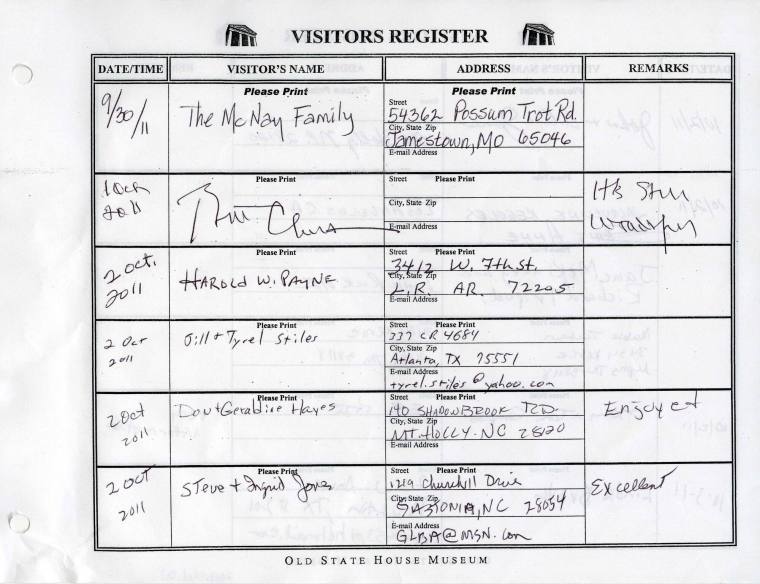 VISITORS REGISTER
DATE/TIME VISITOR'S NAME ADDRESS REMARKS
9/30/11
Please Print
The McNay Family
Please Print
Street
54362 Possum Trot Rd.
City, State Zip
Jamestown, MO 65046
E-mail Address
1 Oct
2011
Please Print
Bill Clinton
Street Please Print
City, State, Zip
E-mail Address
It's Still
Wonderful
2 Oct.
2011
Please Print
HAROLD W. PAYNE
Street Please Print
3412 W. 7th St.
City, State Zip
L.R. AR. 72205
E-mail Address
2 Oct
2011
Please Print
Jill + Tyrel Stiles
Street Please Print
337 CR 4684
City, State Zip
Atlanta, TX 75551
E-mail Address
tyrel.stiles@yahoo.com
2 Oct
2011
Please Print
Don + Geraldine Hayes
Street Please Print
140 SHADOWBROOK RD.
City, State Zip
MT. HOLLY - NC 28120
E-mail Address
Enjoyed
2 Oct
2011
Please Print
Steve + Ingrid Jones
Street Please Print
1219 Churchill Drive
City, State Zip
GASTONIA, NC 28054
E-mail Address
GLBA@MSN.com
Excellent
OLD STATE HOUSE MUSEUM